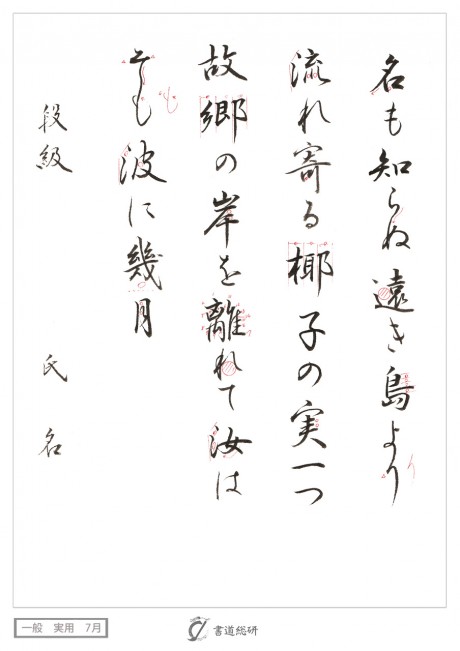 名も知らぬ遠き島より
流れ寄る椰子の実一つ
故郷の岸を離れて汝は
そも波に幾月
段級 氏名
一般 実用 7月
書道総研